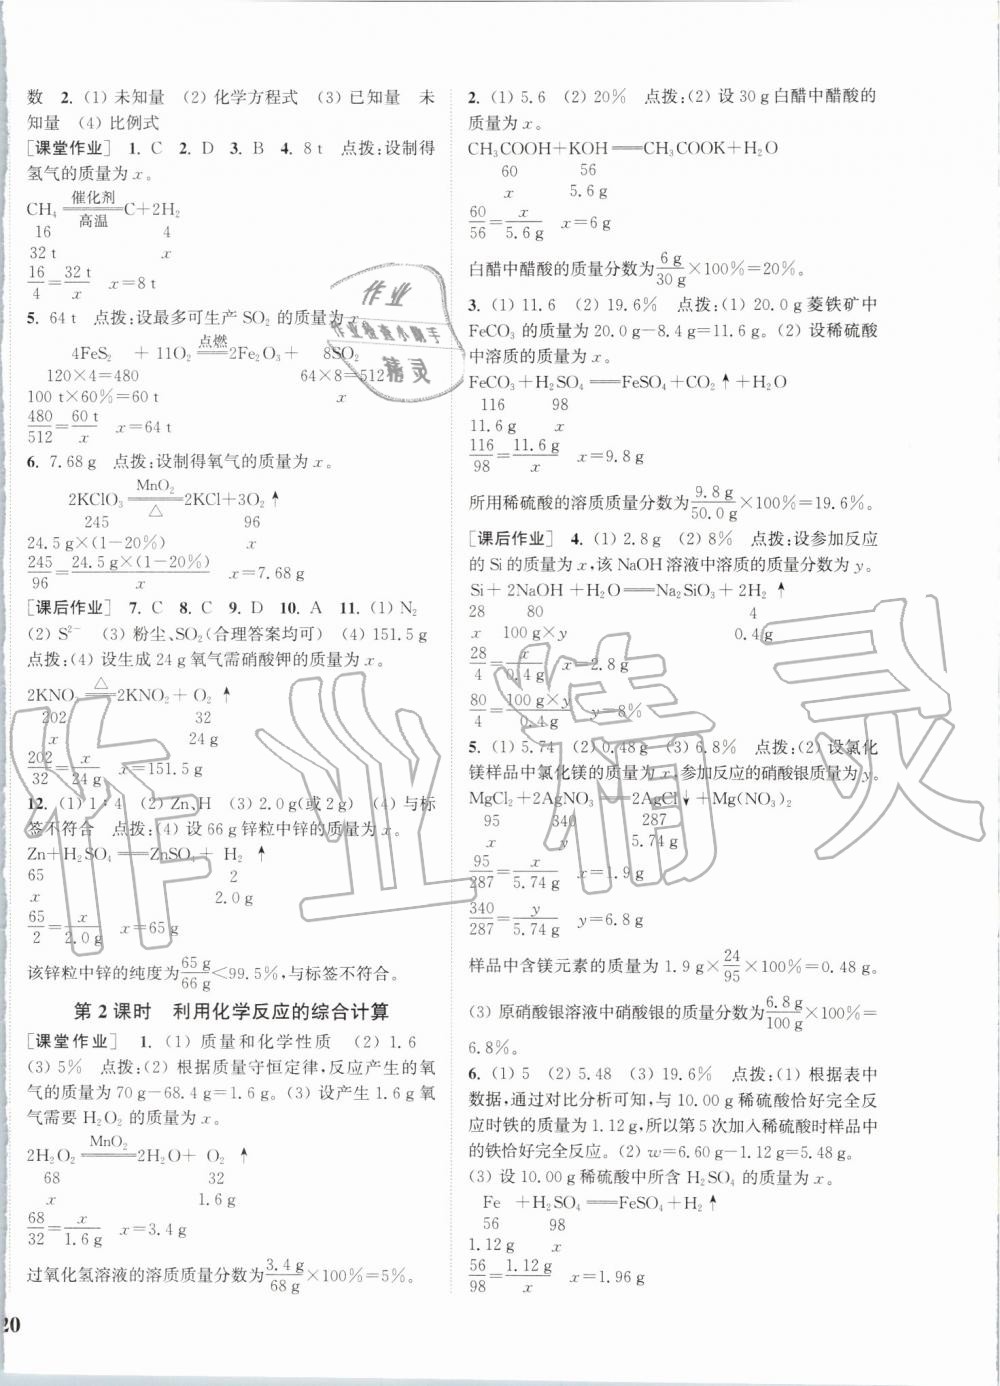 数 2. (1) 未知量 (2) 化学方程式 (3) 已知量 未
知量 (4) 比例式
[课堂作业] 1. C 2. D 3. B 4. 8 t 点拨:设制得
氢气的质量为 x。
催化剂
CH₄═══C+2H₂
高温
16 4
32 t x
16/4=32 t/x x=8 t
5. 64 t 点拨:设最多可生产 SO₂ 的质量为 x
4FeS₂ +11O₂ 点燃═══ 2Fe₂O₃+ 8SO₂
120×4=480 64×8=512
100 t×60%=60 t x
480/512=60 t/x x=64 t
6. 7.68 g 点拨:设制得氧气的质量为 x。
MnO₂
2KClO₃═══2KCl+3O₂↑
△
245 96
24.5 g×(1-20%) x
245/96=24.5 g×(1-20%)/x x=7.68 g
[课后作业] 7. C 8. C 9. D 10. A 11. (1) N₂
(2) S²⁻ (3) 粉尘、SO₂(合理答案均可) (4) 151.5 g
点拨:(4) 设生成 24 g 氧气需硝酸钾的质量为 x。
2KNO₃ △═══ 2KNO₂+ O₂↑
202 32
x 24 g
202/32=x/24 g x=151.5 g
12. (1) 1∶4 (2) Zn、H (3) 2.0 g(或 2 g) (4) 与标
签不符合 点拨:(4) 设 66 g 锌粒中锌的质量为 x。
Zn+H₂SO₄═══ZnSO₄+ H₂↑
65 2
x 2.0 g
65/2=x/2.0 g x=65 g
该锌粒中锌的纯度为65 g/66 g<99.5%,与标签不符合。
第 2 课时 利用化学反应的综合计算
[课堂作业] 1. (1) 质量和化学性质 (2) 1.6
(3) 5% 点拨:(2) 根据质量守恒定律,反应产生的氧
气的质量为 70 g-68.4 g=1.6 g。(3) 设产生 1.6 g 氧
气需要 H₂O₂ 的质量为 x。
MnO₂
2H₂O₂═══2H₂O+ O₂↑
68 32
x 1.6 g
68/32=x/1.6 g x=3.4 g
过氧化氢溶液的溶质质量分数为3.4 g/68 g×100%=5%。
20
2. (1) 5.6 (2) 20% 点拨:(2) 设 30 g 白醋中醋酸的
质量为 x。
CH₃COOH+KOH═══CH₃COOK+H₂O
60 56
x 5.6 g
60/56=x/5.6 g x=6 g
白醋中醋酸的质量分数为6 g/30 g×100%=20%。
3. (1) 11.6 (2) 19.6% 点拨:(1) 20.0 g 菱铁矿中
FeCO₃ 的质量为 20.0 g-8.4 g=11.6 g。(2) 设稀硫酸
中溶质的质量为 x。
FeCO₃+H₂SO₄═══FeSO₄+CO₂↑+H₂O
116 98
11.6 g x
116/98=11.6 g/x x=9.8 g
所用稀硫酸的溶质质量分数为9.8 g/50.0 g×100%=19.6%。
[课后作业] 4. (1) 2.8 g (2) 8% 点拨:设参加反应
的 Si 的质量为 x,该 NaOH 溶液中溶质的质量分数为 y。
Si+2NaOH+H₂O═══Na₂SiO₃+2H₂↑
28 80 4
x 100 g×y 0.4 g
28/4=x/0.4 g x=2.8 g
80/4=100 g×y/0.4 g y=8%
5. (1) 5.74 (2) 0.48 g (3) 6.8% 点拨:(2) 设氯化
镁样品中氯化镁的质量为 x,参加反应的硝酸银质量为 y。
MgCl₂+2AgNO₃═══2AgCl↓+Mg(NO₃)₂
95 340 287
x y 5.74 g
95/287=x/5.74 g x=1.9 g
340/287=y/5.74 g y=6.8 g
样品中含镁元素的质量为 1.9 g×24/95×100%=0.48 g。
(3) 原硝酸银溶液中硝酸银的质量分数为6.8 g/100 g×100%=
6.8%。
6. (1) 5 (2) 5.48 (3) 19.6% 点拨:(1) 根据表中
数据,通过对比分析可知,与 10.00 g 稀硫酸恰好完全反
应时铁的质量为 1.12 g,所以第 5 次加入稀硫酸时样品中
的铁恰好完全反应。(2) w=6.60 g-1.12 g=5.48 g。
(3) 设 10.00 g 稀硫酸中所含 H₂SO₄ 的质量为 x。
Fe +H₂SO₄═══FeSO₄+H₂↑
56 98
1.12 g x
56/98=1.12 g/x x=1.96 g
作业
作业检查小助手
精灵
作业精灵